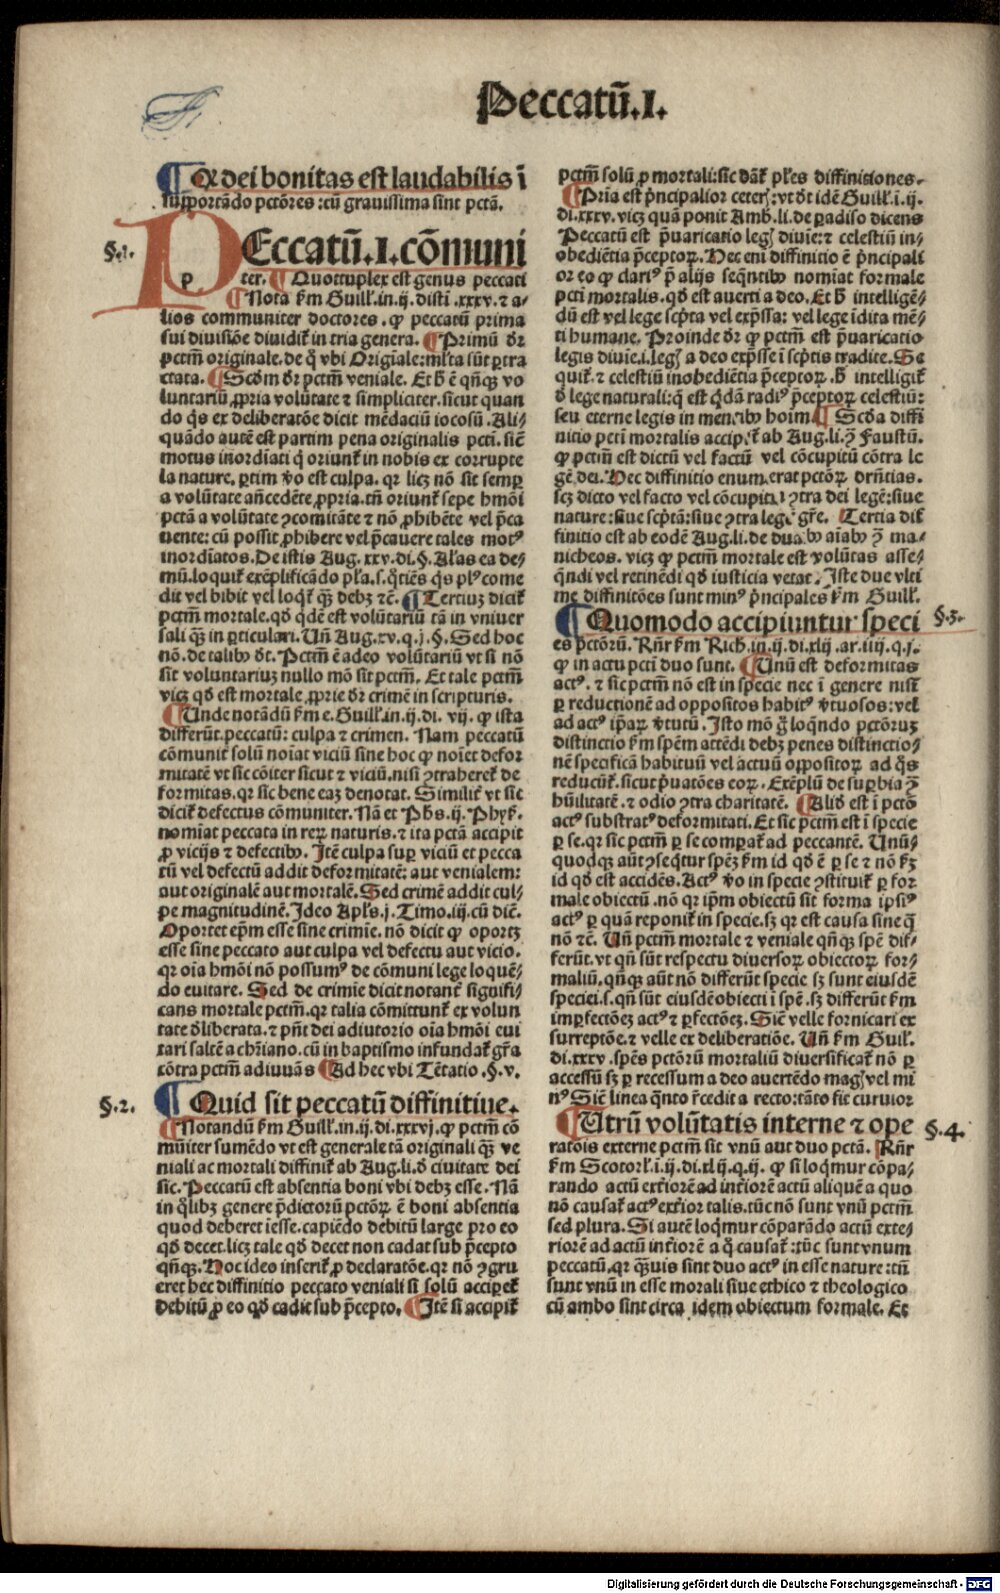 Peccatū.I.
¶ Ꝙ dei bonitas est laudabilis ī
supportādo pctōres: cū grauissima sint pctā.
§.1.
PEccatū.I.cōmuni
p
ter. ¶ Quottuplex est genus peccati
¶ Nota ẜm Guilł.in.ij.disti.xxxv.⁊ a⸗
lios communiter doctores. ꝙ peccatū prima
sui diuisiōe diuidit̄ in tria genera. ¶ Primū dr̄
pctm̄ originale.de q̊ vbi Origīale: ml̓ta sūt ꝑtra
ctata. ¶ Scd̓m dr̄ pctm̄ veniale. Et h̓ ē qn̄qꝫ vo
luntariū ꝓpria volūtate ⁊ simpliciter.sicut quan
do q̓s ex deliberatōe dicit mēdaciū iocosū. Ali⸗
quādo autē est partim pena originalis pcti. sic̄
motus inordīati q̓ oriunt̄ in nobis ex corrupte
la nature. ꝑtim v̓o est culpa. qꝛ licꝫ nō sit semꝑ
a volūtate an̄cedēte ꝓpria. tn̄ oriunt̄ sepe hm̄oi
pctā a volūtate ꝯcomitāte ⁊ nō ꝓhibēte vel p̄ca
uente: cū possit ꝓhibere vel p̄cauere tales motꝰ
inordīatos. De istis Aug. xxv.di.§. Al̓as ea de⸗
mū. loquit̄ exēplificādo pl̓a.s.q̓tiēs q̓s plꝰ come
dit vel bibit vel loqt̄ qꝫ debꝫ ⁊c̄. ¶ Tertiuꝫ dicit̄
pctm̄ mortale.qd̓ qd̓ē est volūtariū tā in vniuer
sali qꝫ in ꝑticulari. Un̄ Aug.xv.q.j.§. Sed hoc
nō. de talibꝰ dt̄. Pctm̄ ē adeo volūtariū vt si nō
sit voluntariuꝫ nullo mō sit pctm̄. Et tale pctm̄
vicꝫ qd̓ est mortale ꝓprie dr̄ crimē in scripturis.
¶ Unde notādū ẜm e. Guilł.in.ij.di. vij. ꝙ ista
differūt.peccatū: culpa ⁊ crimen. Nam peccatū
cōmunit̓ solū noīat viciū sine hoc ꝙ noīet defor
mitatē vt sic cōiter sicut ⁊ viciū.nisi ꝯtraheret̄ de
formitas.qꝛ sic bene eaꝫ denotat. Similit̓ vt sic
dicit̄ defectus cōmuniter. Nā et Phs̄.ij. Phyẜ.
nomīat peccata in reꝝ naturis.⁊ ita pctā accipit
ꝓ vicijs ⁊ defectibꝰ. Itē culpa suꝑ viciū et pecca
tū vel defectū addit deformitatē: aut venialem:
aut originalē aut mortalē. Sed crimē addit cul⸗
pe magnitudinē. Ideo Apl̓s.j. Timo.iij.cū dic̄.
Oportet ep̄m esse sine crimīe. nō dicit ꝙ oportꝫ
esse sine peccato aut culpa vel defectu aut vicio.
qꝛ oīa hm̄oi nō possumꝰ de cōmuni lege loquē⸗
do euitare. Sed de crimīe dicit notant̓ signifi⸗
cans mortale pctm̄.qꝛ talia cōmittunt̄ ex volun
tate d̓liberata.⁊ pn̄t dei adiutorio oīa hm̄oi eui
tari saltē a chr̄iano.cū in baptismo infundat̄ gr̄a
cōtra pctm̄ adiuuās ¶ Ad hec vbi Tētatio .§.v.
§.2.
¶ Quid sit peccatū diffinitiue.
¶ Notandū ẜm Guilł.in.ij.di.xxxvj.ꝙ pctm̄ cō
muniter sumēdo vt est generale tā originali qꝫ ve
niali ac mortali diffinit̄ ab Aug.li.d̓ ciuitate dei
sic. Peccatū est absentia boni vbi debꝫ esse. Nā
in q̓libꝫ genere p̄dictorū pctōꝝ ē boni absentia
quod deberet īesse.capiēdo debitū large pro eo
qd̓ decet.licꝫ tale qd̓ decet non cadat sub p̄cepto
qn̄qꝫ. Hoc ideo inserit̄ ꝓ declaratōe.qꝛ nō ꝯgru
eret hec diffinitio peccato veniali si solū acciꝑet̄
debitū ꝓ eo qd̓ cadit sub p̄cepto. ¶ Itē si accipit̄
pctm̄ solū ꝓ mortali: sic dāt̄ pl̓es diffinitiones.
¶ Prīa est p̓ncipalior ceteꝝ: vt dt̄ idē Guilł.i.ij.
di.xxxv.vicꝫ quā ponit Amb.li.de ꝑadiso dicens
Peccatū est p̄uaricatio legꝭ diuīe: ⁊ celestiū in⸗
obediētia p̄ceptoꝝ. Hec eni diffinitio ē p̓ncipali
or eo ꝙ clariꝰ p̄ alijs seqn̄tibꝰ nomīat formale
pcti mortalis.qd̓ est auerti a deo. Et h̓ intelligē⸗
dū est vel lege sc̓pta vel exp̄ssa: vel lege īdita mē⸗
ti humane. Proinde dr̄ ꝙ pctm̄ est p̄uaricatio
legis diuīe.i.legꝭ a deo exp̄sse ī sc̓ptis tradite. Se
quit̄.⁊ celestiū inobediētia p̄ceptoꝝ. h̓ intelligit̄
d̓ lege naturali: q̄ est qd̓ā radiꝰ p̄ceptoꝝ celestiū:
seu eterne legis in mentibꝰ hoīm. ¶ Scd̓a diffi
nitio pcti mortalis accipit̄ ab Aug.li.ꝯ̄ Faustū.
ꝙ pctm̄ est dictū vel factū vel cōcupitū cōtra le
gē dei. Hec diffinitio enumerat pctōꝝ drn̄tias.
scꝫ dicto vel facto vel cōcupito ꝯtra dei legē: siue
nature: siue sc̓ptā: siue ꝯtra legē gr̄e. Tertia dif
finitio est ab eodē Aug.li.de duabꝰ aīabꝰ ꝯ̄ ma⸗
nicheos. vicꝫ ꝙ pctm̄ mortale est volūtas asse⸗
qn̄di vel retinēdi qd̓ iusticia vetat. Iste due vlti
me diffinitōes sunt minꝰ p̓ncipales ẜm Guilł.
§.3.
¶ Quomodo accipiuntur speci
es pctōrū. Rn̄r ẜm Rich.in.ij.di.xlij.ar.iiij.q.j.
ꝙ in actu pcti duo sunt. ¶ Unū est deformitas
actꝰ. ⁊ sic pctm̄ nō est in specie nec ī genere nisi
ꝑ reductionē ad oppositos habitꝰ v̓tuosos: vel
ad actꝰ ip̄aꝝ v̓tutū. Isto mō g̊ loqn̄do pctōruꝫ
distinctio ẜm spēm attēdi debꝫ penes distinctio⸗
nē specificā habituū vel actuū oppositoꝝ ad q̊s
reducūt̄.sicut p̓uatōes eoꝝ. Exēplū de suꝑbia ꝯ̄
hūilitatē.⁊ odio ꝯtra charitatē. ¶ Aliud̓ est ī pctō
actꝰ substratꝰ deformitati. Et sic pctm̄ est ī specie
ꝑ se.qꝛ sic pctm̄ ꝑ se comꝑat̄ ad peccantē. Unū⸗
quodqꝫ aūt ꝯseqt̄ur spēꝫ ẜm id qd̓ ē ꝑ se ⁊ nō ẜꝫ
id qd̓ est accidēs. Actꝰ v̓o in specie ꝯstituit̄ ꝑ for
male obiectū. nō qꝛ ip̄m obiectū sit forma ipsiꝰ
actꝰ ꝑ quā reponit̄ in specie.sꝫ qꝛ est causa sine q̄
nō ⁊c̄. Un̄ pctm̄ mortale ⁊ veniale qn̄qꝫ spē dif⸗
ferūt. vt qn̄ sūt respectu diuersoꝝ obiectoꝝ for⸗
maliū. qn̄qꝫ aūt nō differūt specie sꝫ sunt eiusdē
speciei.s.qn̄ sūt eiusdē obiecti ī spē.sꝫ differūt ẜm
imꝑfectōeꝫ actꝰ ⁊ ꝑfectōeꝫ. Sic̄ velle fornicari ex
surreptōe.⁊ velle ex deliberatiōe. Un̄ ẜm Guil̓.
di.xxxv. spēs pctōrū mortaliū diuersificat̄ nō ꝑ
accessū sꝫ ꝑ recessum a deo auertēdo magꝭ vel mi
nꝰ Sic̄ linea qn̄to r̓cedit a recto: tāto fit curuior
§.4.
¶ Utrū volūtatis interne ⁊ ope
ratōis externe pctm̄ sit vnū aut duo pctā. Rn̄r
ẜm Scotorł.i.ij.di.xlij.q.ij. ꝙ si loqmur cōpa⸗
rando actū ext̓iorē ad int̓iorē actū aliquē a quo
nō causat̄ actꝰ ext̓ior talis. tūc nō sunt vnū pctm̄
sed plura. Si autē loqmur cōparādo actū exte⸗
riorē ad actū int̓iorē a q̊ causat̄: tūc sunt vnum
peccatū. qꝛ quāuis sint duo actꝰ in esse nature: tn̄
sunt vnū in esse morali siue ethico ⁊ theologico
cū ambo sint circa idem obiectum formale. Et
Digitalisierung gefördert durch die Deutsche Forschungsgemeinschaft - DFG